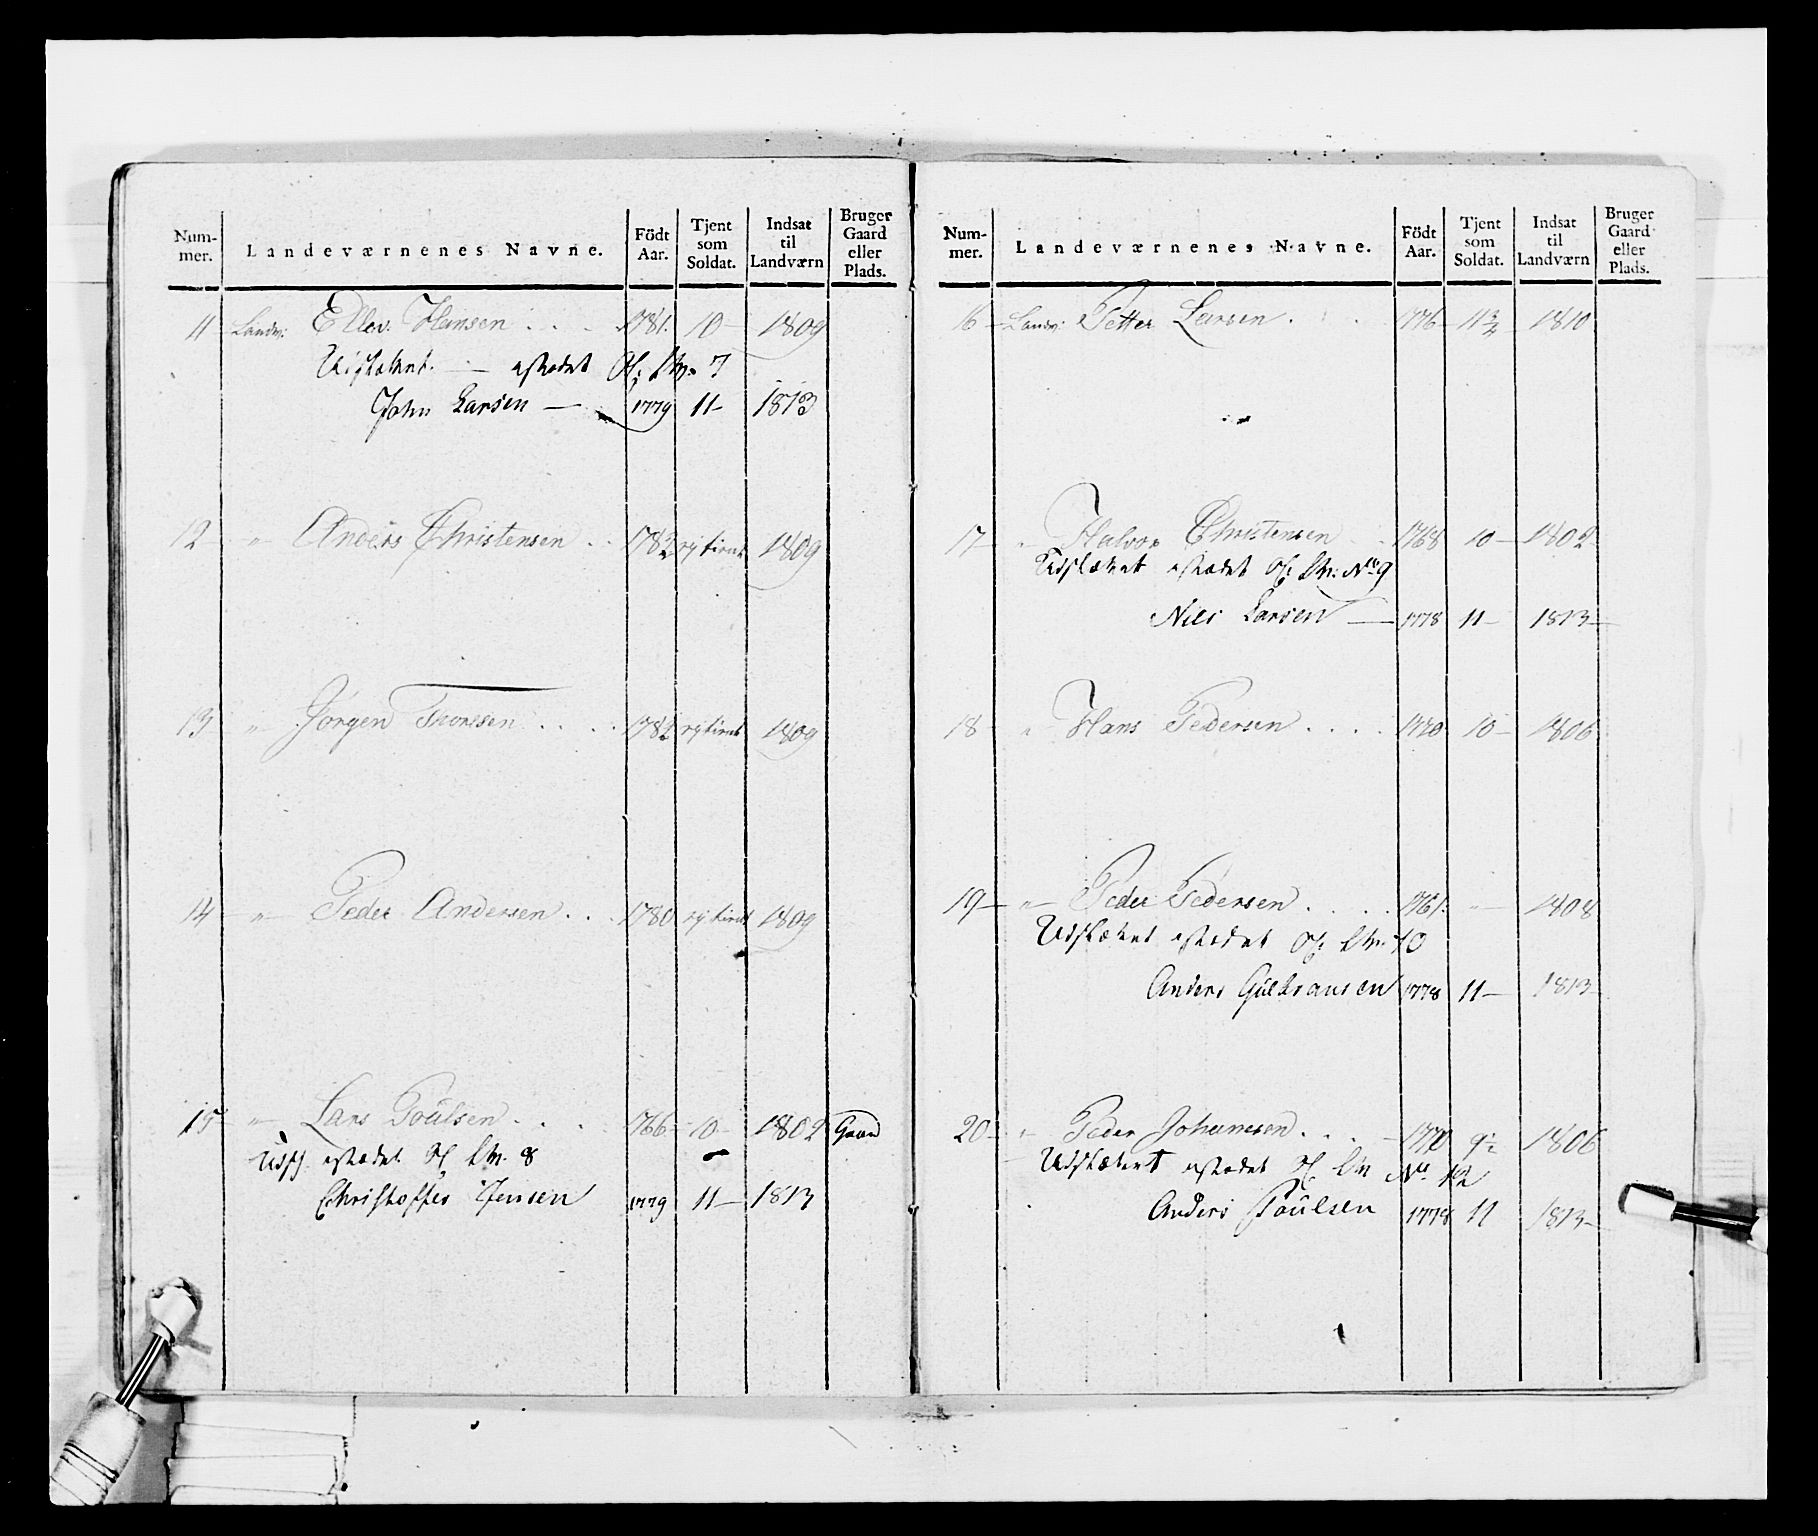 Num-
mer.
Landeværnenes Navne.
Födt
Aar.
Tjent
som
Soldat.
Indsat
til
Landværn
Bruger
Gaard
eller
Plads.
11 Landv: Ellev. Hansen . . . 1781. 10 — 1809
Udslættet. — No 7
John Larsen — 1779 11 — 1813
12 — " — Anders Christensen . . 1809
13 " Jörgen Thoresen . . . . 1809
14 — " — Peder Andersen . . . 1780 1809
15 " — Lars Poulsen . . . . 1766 — 10 — 1802 Gaard
Udsl. 8
Christoffer Jensen 1779 11 — 1813
Num-
mer.
Landeværnenes Navne.
Födt
Aar.
Tjent
som
Soldat.
Indsat
til
Landværn
Bruger
Gaard
eller
Plads.
16 — Landv: Petter Larsen . . . 1776 11 3/4 1810
17 — " Halvor Christensen . . 1768 10 — 1802
Udslættet No 9
Niels Larsen — 1778 11 — 1813 —
18 — " Hans Pedersen . . . . 1770 10 — 1806
19 — " — Peder Pedersen . . . . 1761. — " — 1808
Udslættet 10
Anders Gulbransen 1778 11 — 1813 —
20 — " Peder Johannesen . . . — 1770 9 1/2 1806
Udslættet No. 12
Anders Poulsen 1778 11 1813 —